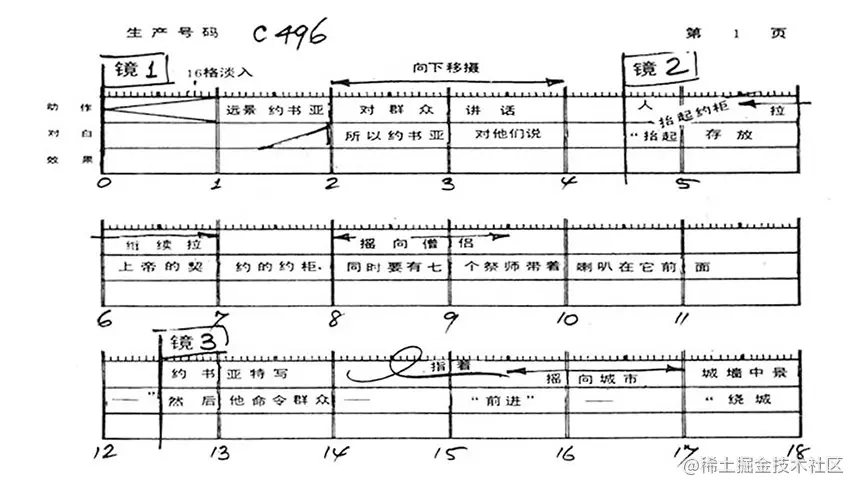 生产号码 C496 第 1 页
镜1 16格淡入 向下移摄 镜2
动作 远景约书亚 对群众 讲话 人 抬起约柜 拉
对白 所以约书亚 对他们说 “抬起 存放
效果
0 1 2 3 4 5
继续拉 摇向僧侣
上帝的契 约的约柜. 同时要有七 个祭师带着 喇叭在它前 面
6 7 8 9 10 11
镜3
约书亚特写 指着 摇向城市 城墙中景
——” 然后他命令群众 —— “前进” —— “绕城
12 13 14 15 16 17 18
@稀土掘金技术社区